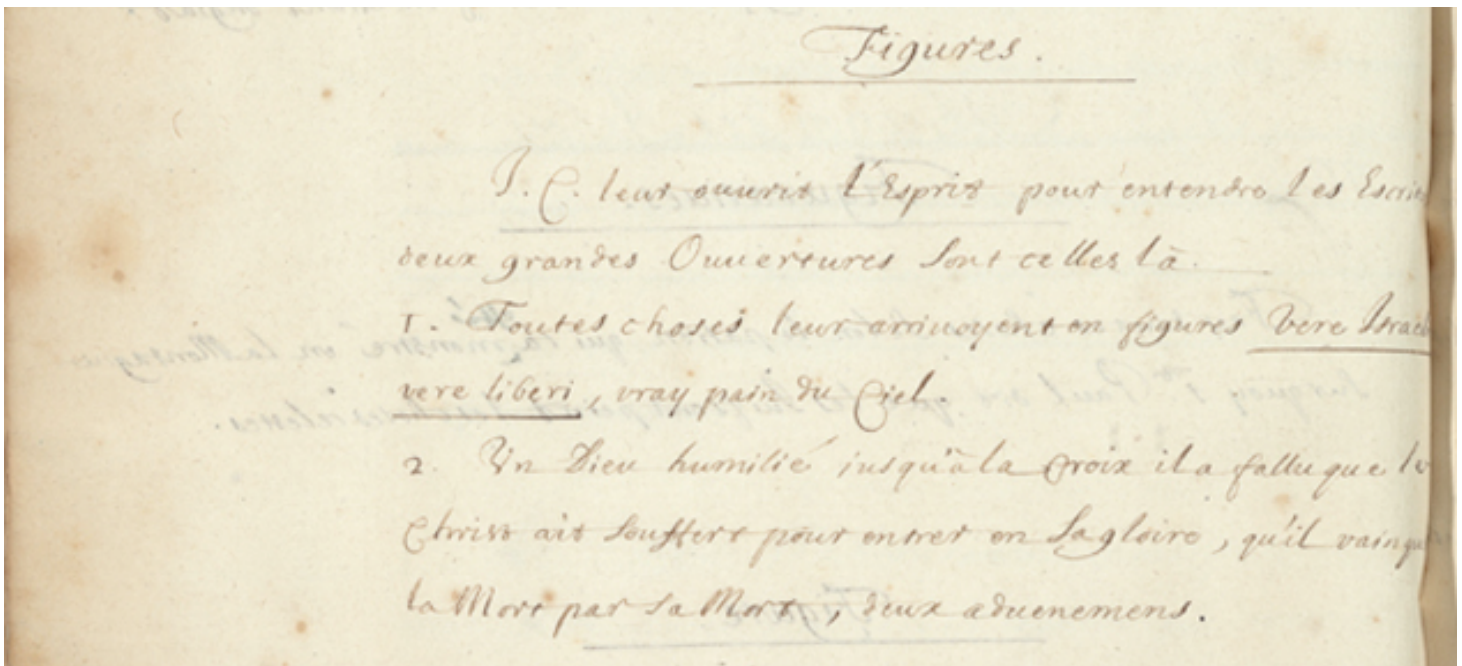 Figures.
J. C. leur ouurit l'Esprit pour entendre les Escri
deux grandes Ouuertures sont celles là.
1. Toutes choses leur arriuoyent en figures vere Israel
vere liberi, vray pain du Ciel.
2. Un Dieu humilié iusqu'à la Croix il a fallu que le
Christ ait souffert pour entrer en sa gloire, qu'il vainqu
la Mort par sa Mort, deux aduenemens.